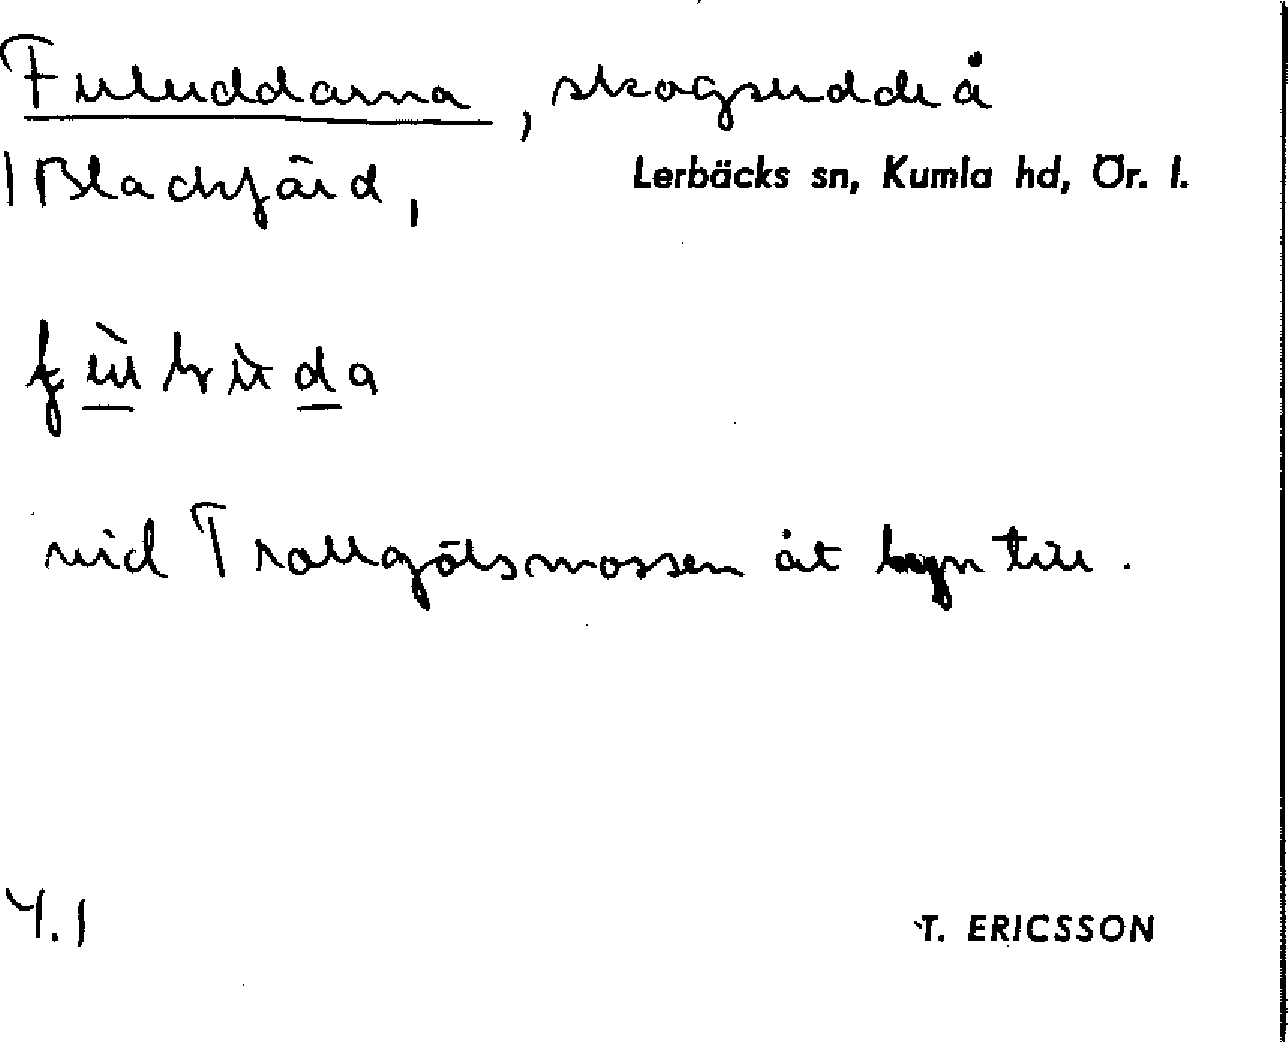 Fuluddarna, skogsudde å
1 Blackfärd,
Lerbäcks sn, Kumla hd, Ör. l.
vid Trollgölsmossen åt byn till.
4.1
T. ERICSSON